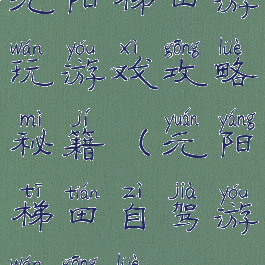 元阳梯田游
wán yóu xì gōng lüè
玩游戏攻略
mì jí yuán yáng
秘籍（元阳
tī tián zì jià yóu
梯田自驾游
wán gōng lüè